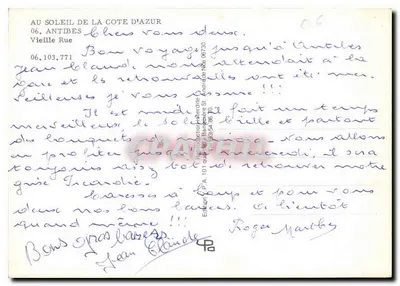 AU SOLEIL DE LA COTE D'AZUR
06. ANTIBES
Vieille Rue
06.103.771
06
Chers vous deux.
Bon voyage jusqu'à Antibes
Jean Claude nous attendait à la
gare et les retrouvailles ont été mer-
veilleuses je vous assure !!!
Il est midi et fait un temps
merveilleux le soleil brille et partout
des bouquets de vous allons
en profiter il sera
toujours assez tôt de retrouver notre
grise Picardie.
Caresses à et pour vous
deux nos bons baisers. A bientôt
quand même !!!
Roger Marthe
Bons gros baisers
Jean Claude